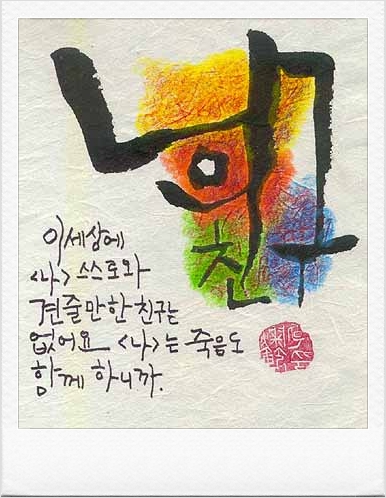 친구
이 세상에
<나> 스스로와
견줄만한 친구는
없어요 <나>는 죽음도
함께 하니까.